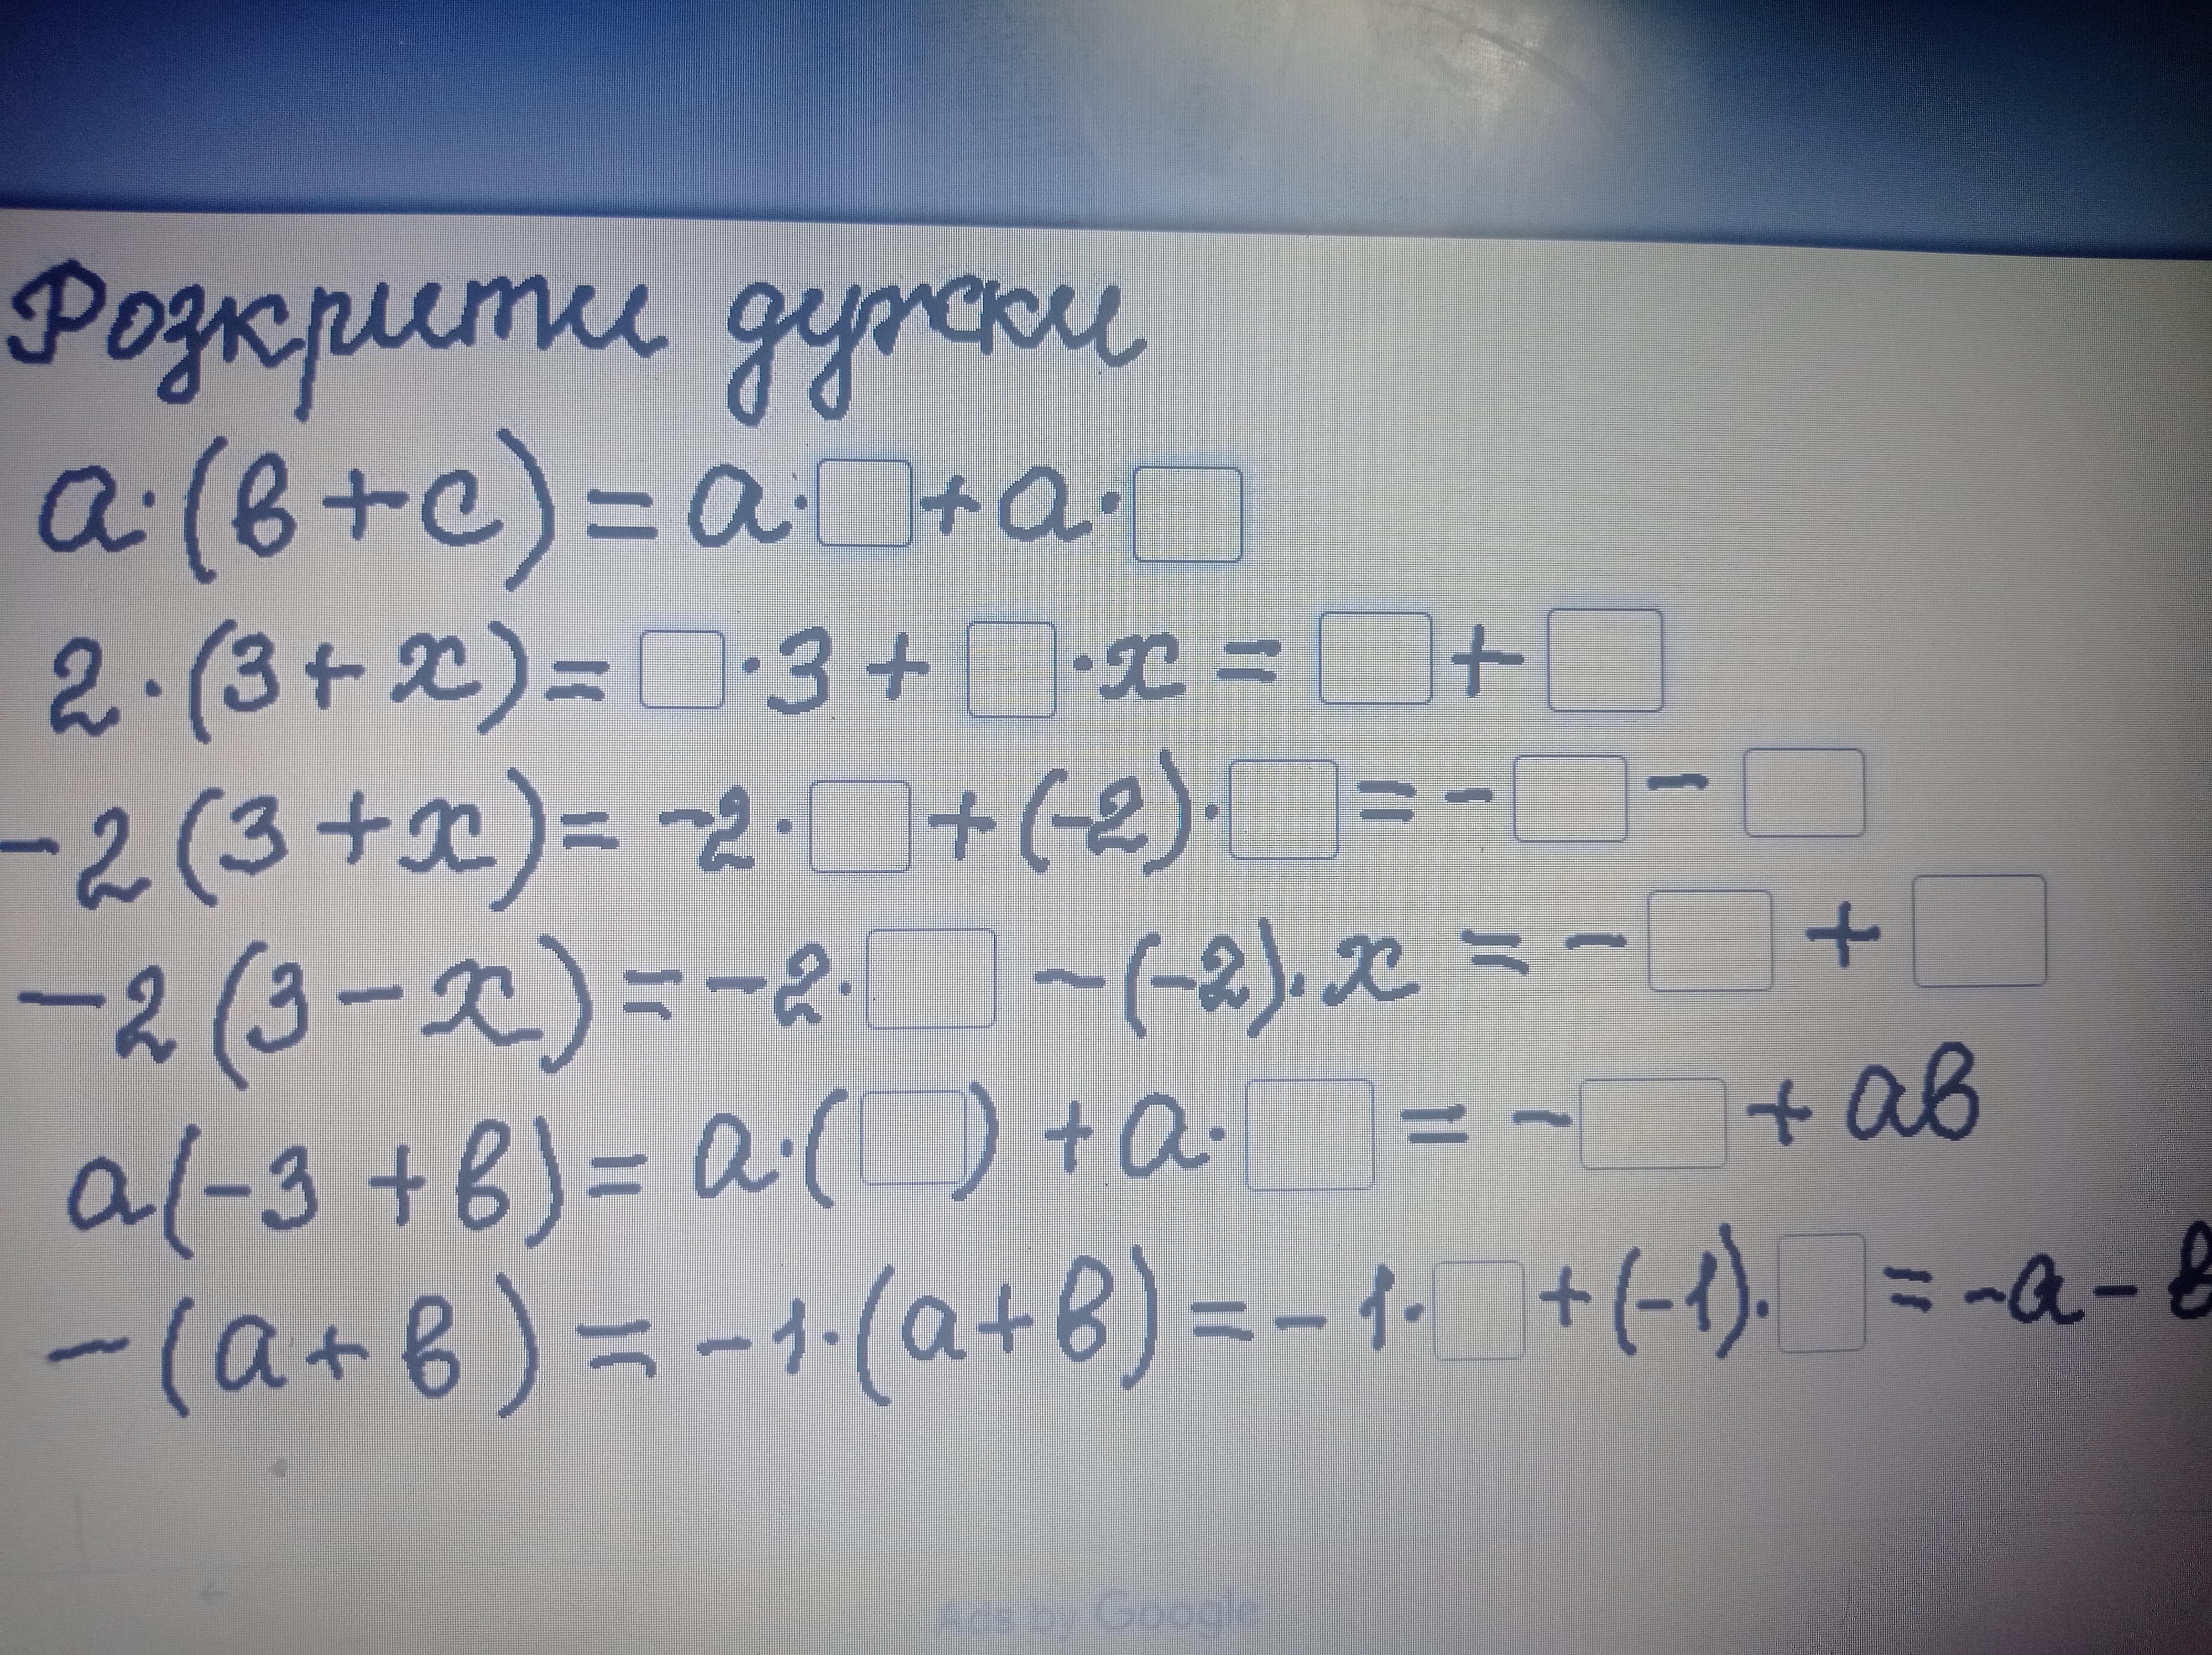 Розкрити дужки
a·(в+c)=a·□+a·□
2·(3+x)=□·3+□·x=□+□
-2(3+x)=-2·□+(-2)·□=-□-□
-2(3-x)=-2·□-(-2)·x=-□+□
a(-3+в)=a·(□)+a·□=-□+aв
-(a+в)=-1·(a+в)=-1·□+(-1)·□=-a-в
Ads by Google